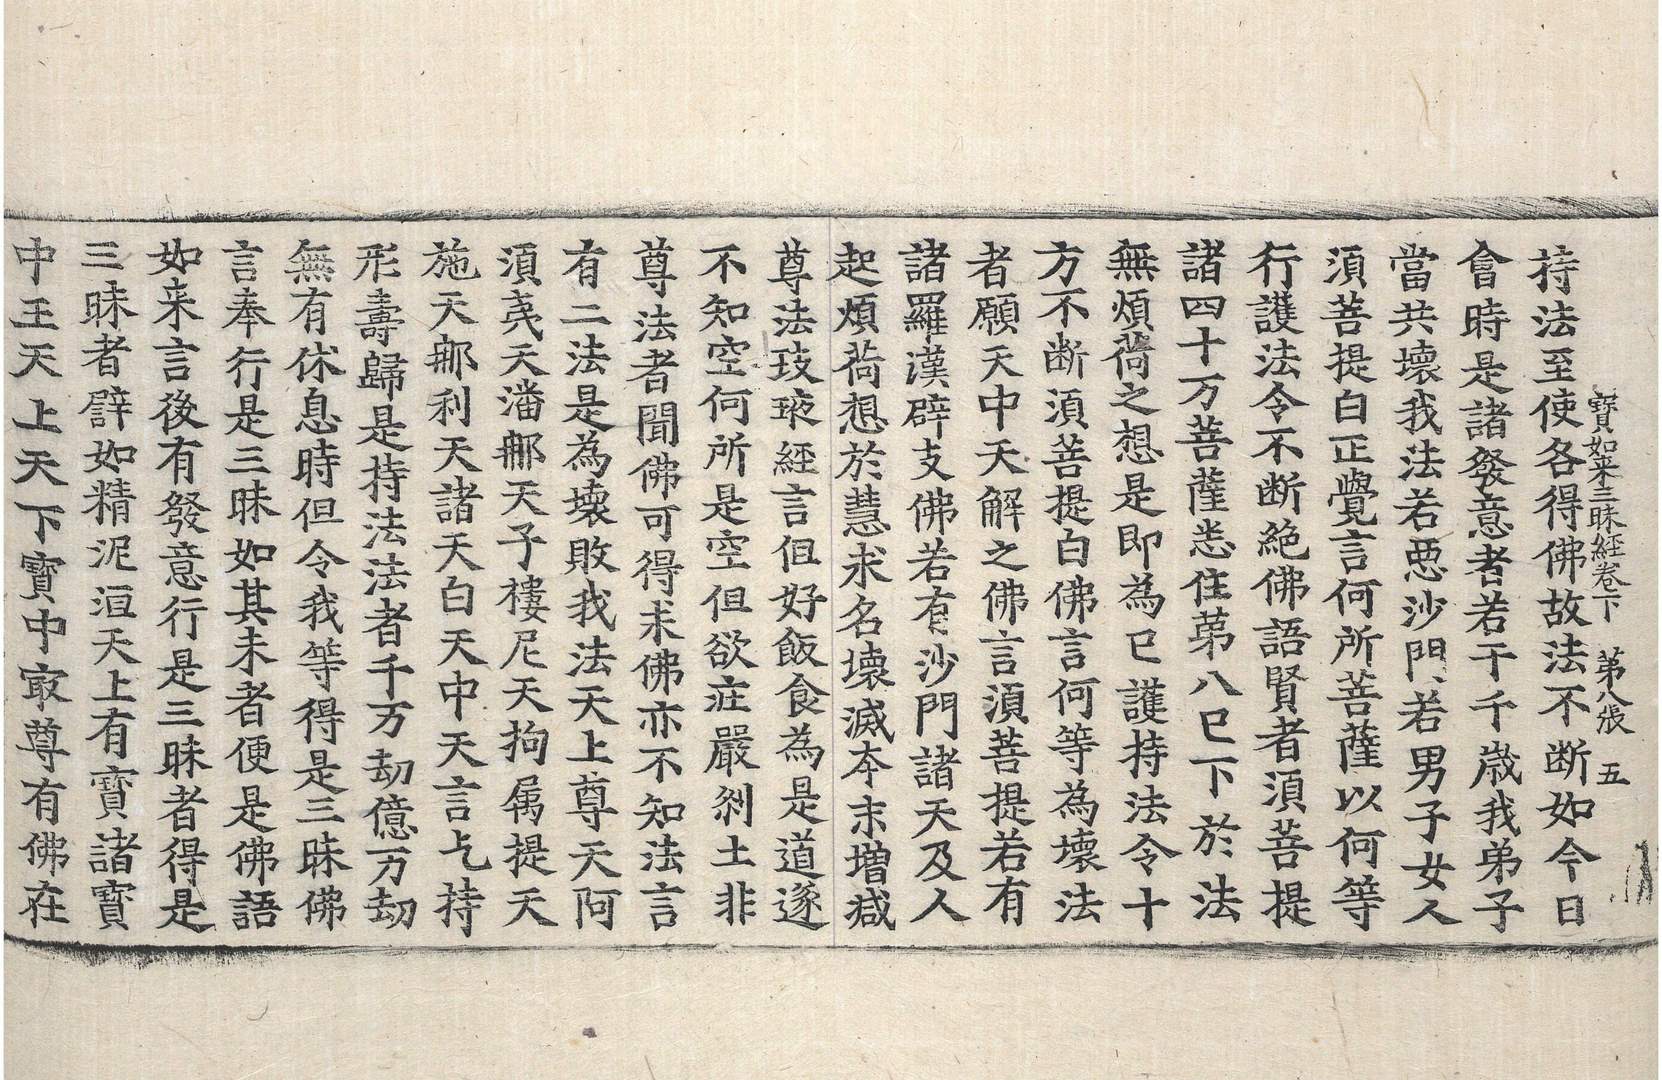 寶如来三昧經卷下　第八張　五
持法至使各得佛故法不断如今日
會時是諸發意者若干千歳我弟子
當共壞我法若惡沙門若男子女人
湏菩提白正覺言何所菩薩以何等
行護法令不断絶佛語賢者湏菩提
諸四十万菩薩悉住苐八已下於法
無煩荷之想是即為已護持法令十
方不断湏菩提白佛言何等為壞法
者願天中天解之佛言湏菩提若有
諸羅漢辟支佛若有沙門諸天及人
起煩荷想於慧求名壞滅夲末増减
尊法技瘀經言但好飯食為是道遂
不知空何所是空但欲庄嚴刹土非
尊法者聞佛可得求佛亦不知法言
有二法是為壞敗我法天上尊天阿
湏夷天潘郍天子樓尼天拘属提天
施天郍利天諸天白天中天言乞持
形壽歸是持法法者千万劫億万劫
無有休息時但令我等得是三昧佛
言奉行是三昧如其未者便是佛語
如来言後有發意行是三昧者得是
三昧者譬如精泥洹天上有寶諸寶
中王天上天下寶中㝡尊有佛在